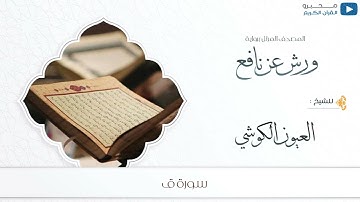 محبرو
القرآن الكريم
المصحف المنزل برواية
ورش عن نافع
للشيخ :
العيون الكوشي
سورة ق